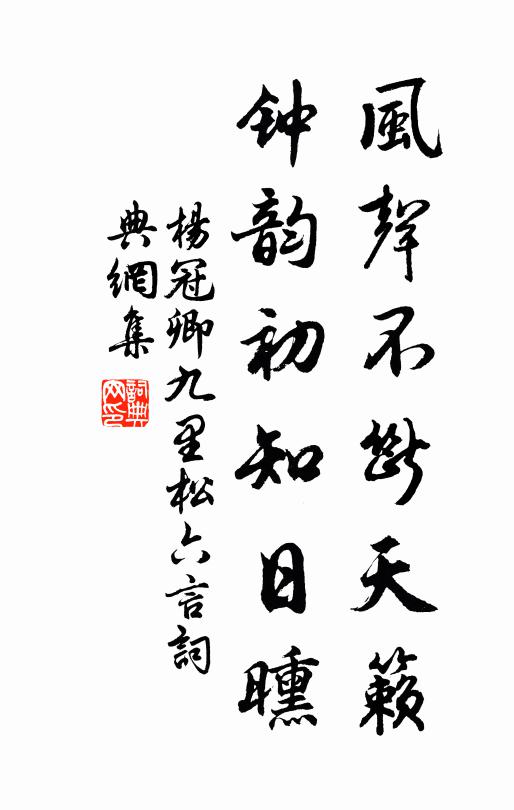 風聲不斷天籟
钟韵初知日曛
楊冠卿九里松六言詞
典網集
詞典網印